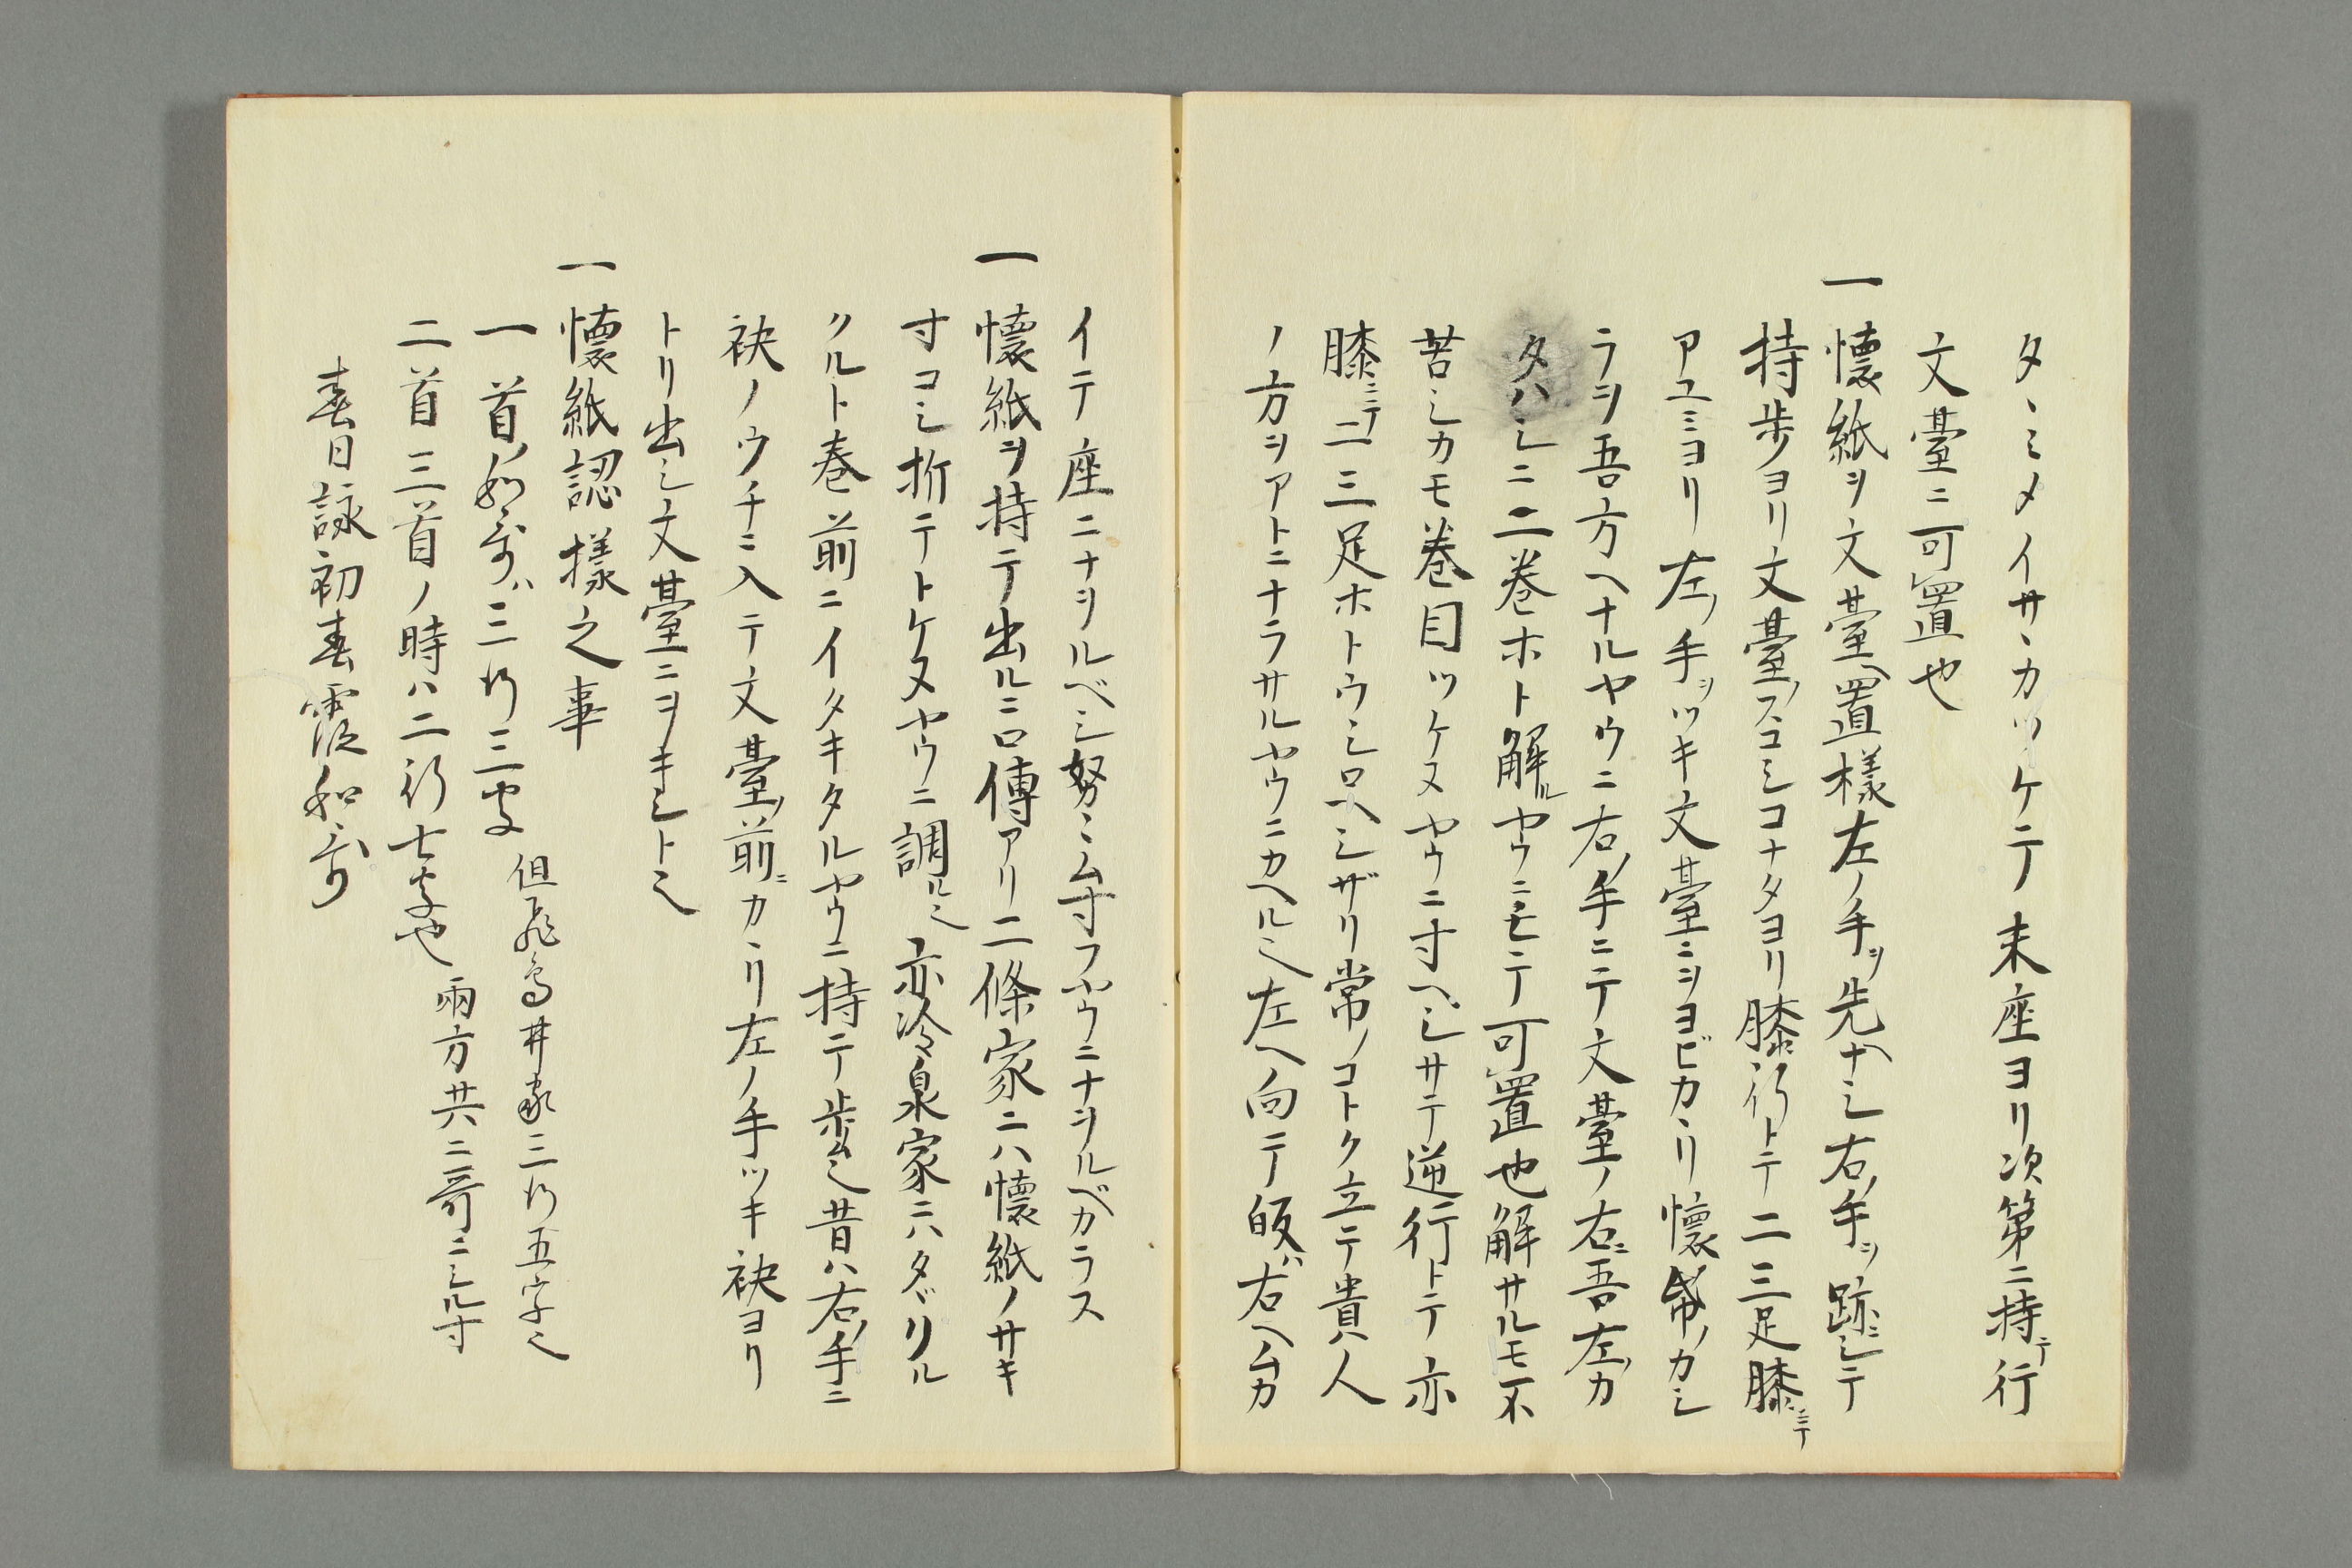 タヽミメイサヽカツケテ末座ヨリ次第ニ持テ行
文臺ニ可置也
一懐紙ヲ文臺ヘ置様左ノ手ヲ先ヘナシ右ノ手ヲ跡ニシテ
持歩ヨリ文臺ノスコシコナタヨリ膝行トテ二三足膝ニテ
アユミヨリ左ノ手ヲツキ文臺ニヲヨビカヽリ懐帋ノカシ
ラヲ吾方ヘナルヤウニ右ノ手ニテ文臺ノ右ニ吾左ノカ
タハシニ二巻ホト解ルヤウニモテ可置也解サルモ不
苦シカモ巻目ツケヌヤウニすヘシサテ逆行トテ亦
膝ニテ二三足ホトウシロヘシザリ常ノコトク立テ貴人
ノ方ヲアトニナラサルヤウニカヘル也左ヘ向テ皈ハ右ヘムカ
イテ座ニナヲルベシ努ミムすフヤウニナヲルベカラス
一懐紙ヲ持テ出ルニ口傳アリ二條家ニハ懐紙ノサキ
すコシ折テトケヌヤウニ調ル也亦冷泉家ニハタヾリル
クルト巻前ニイタキタルヤウニ持テ歩ム也昔ハ右ノ手ニ
袂ノウチニ入テ文臺ノ前ニカヽリ左ノ手ツキ袂ヨリ
トリ出シ文臺ニヲキシト也
一懐紙認様之事
一首ノ和哥ハ三行三字 但飛鳥井家三行五字也
二首三首ノ時ハ二行七字也 兩方共ニ哥ニシルす
春日詠初春霞和哥